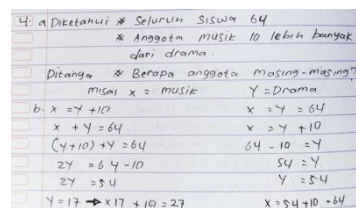 4. a Diketahui * Seluruh siswa 64
* Anggota musik 10 lebih banyak
dari drama.
Ditanya * Berapa anggota masing-masing?
misal x = musik Y = Drama
b. x = y + 10 x = y = 64
x + y = 64 x = y + 10
(y+10) + y = 64 64 - 10 = y
2y = 64 - 10 54 = y
2y = 54 y = 54
y = 17 → x 17 + 10 = 27 x = 54 + 10 = 64